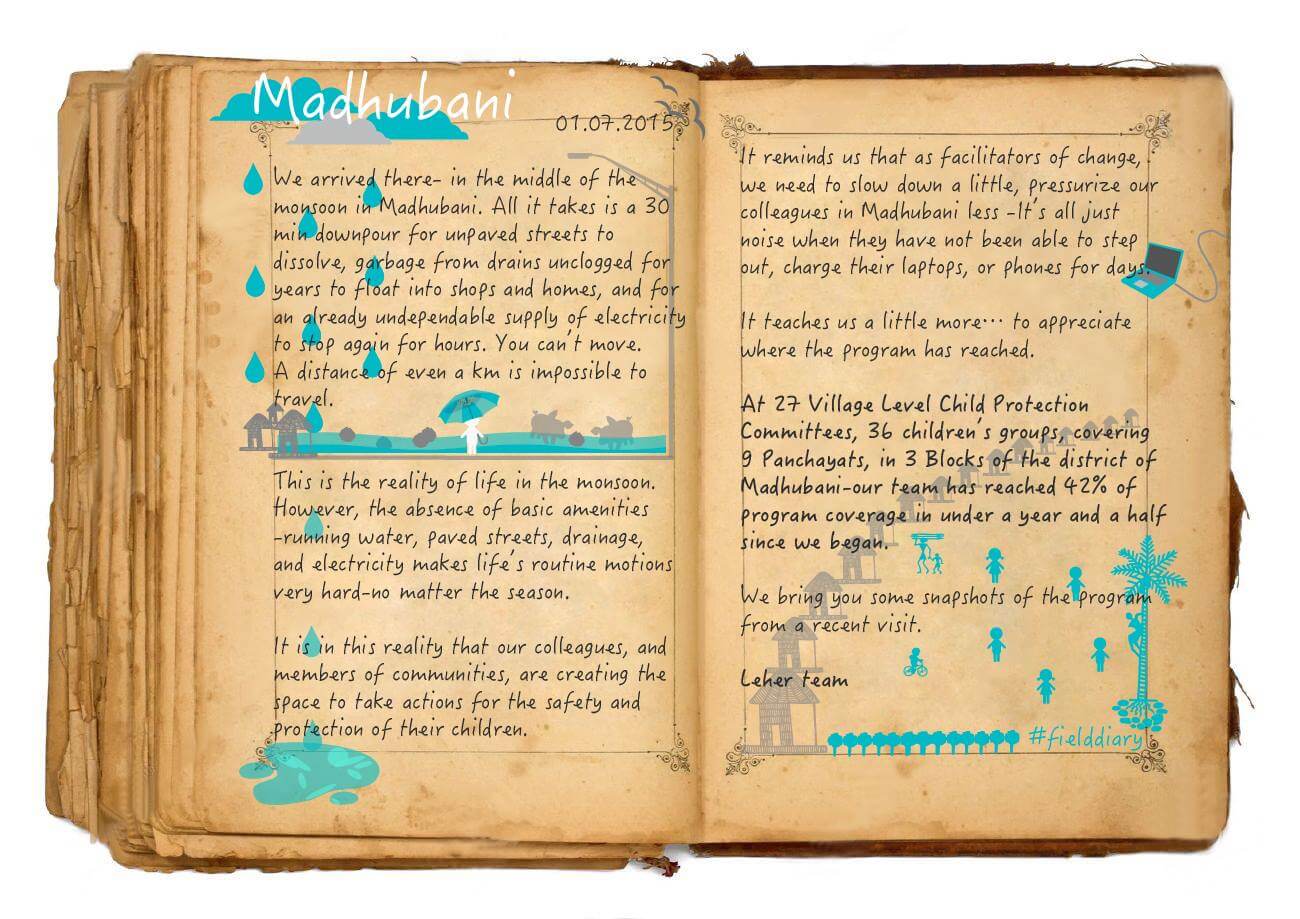 Madhubani
01.07.2015
We arrived there- in the middle of the
monsoon in Madhubani. All it takes is a 30
min downpour for unpaved streets to
dissolve, garbage from drains unclogged for
years to float into shops and homes, and for
an already undependable supply of electricity
to stop again for hours. You can't move.
A distance of even a km is impossible to
travel.
This is the reality of life in the monsoon.
However, the absence of basic amenities
-running water, paved streets, drainage,
and electricity makes life's routine motions
very hard-no matter the season.
It is in this reality that our colleagues, and
members of communities, are creating the
space to take actions for the safety and
protection of their children.
It reminds us that as facilitators of change,
we need to slow down a little, pressurize our
colleagues in Madhubani less -It's all just
noise when they have not been able to step
out, charge their laptops, or phones for days.
It teaches us a little more... to appreciate
where the program has reached.
At 27 Village Level Child Protection
Committees, 36 children's groups, covering
9 Panchayats, in 3 Blocks of the district of
Madhubani-our team has reached 42% of
program coverage in under a year and a half
since we began.
We bring you some snapshots of the program
from a recent visit.
Leher team
#fielddiary